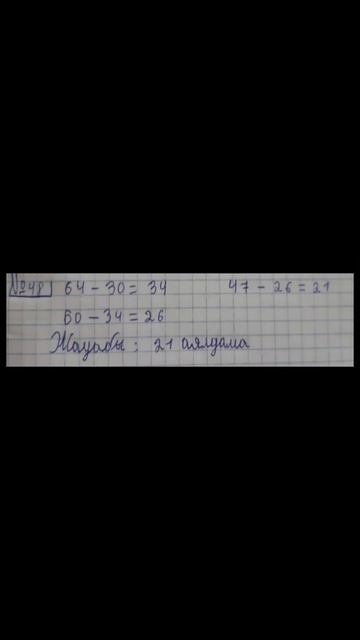 №48 64 - 30 = 34 47 - 26 = 21
60 - 34 = 26
Жауабы : 21 аялдама